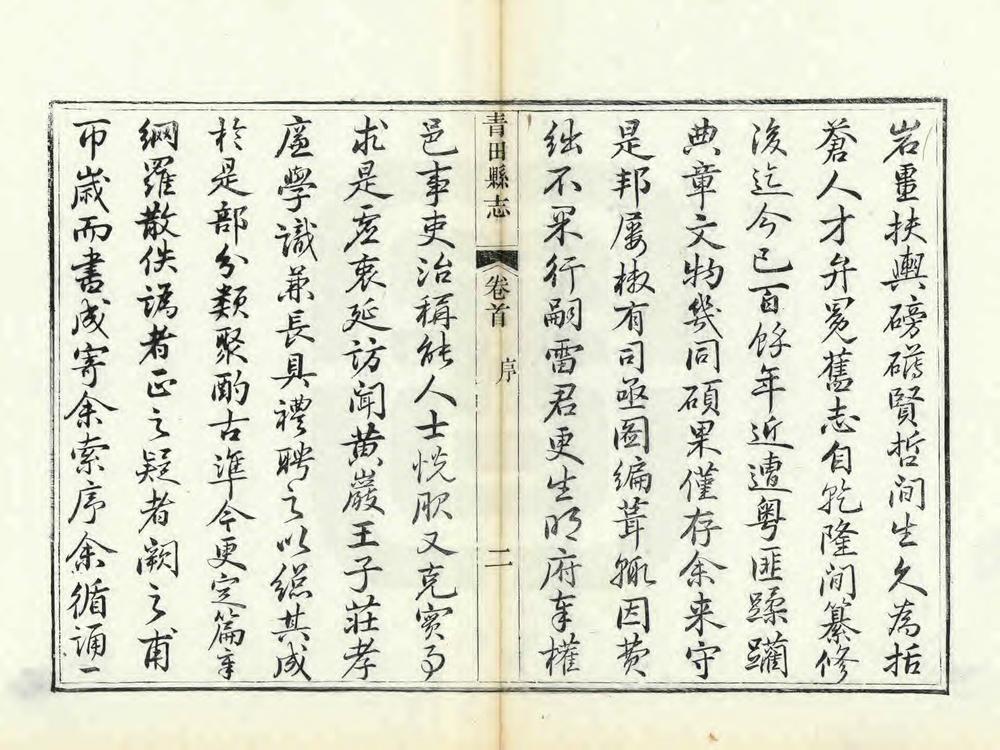 岩畺扶輿磅礴賢哲間生久為括
蒼人才弁冕舊志自乾隆間纂修
後迄今已百餘年近遭粵匪蹂躪
典章文物幾同碩果僅存余来守
是邦屢檄有司亟圖編葺輒因費
絀不果行嗣雷君更生明府奉權
青田縣志
卷首
序
二
邑事吏治稱能人士悦服又克實事
求是虛衷延訪聞黄巖王子莊孝
廉學識兼長具禮聘之以總其成
於是部分類聚酌古準今更定篇章
網羅散佚譌者正之疑者闕之甫
帀歲而書成寄余索序余循誦一